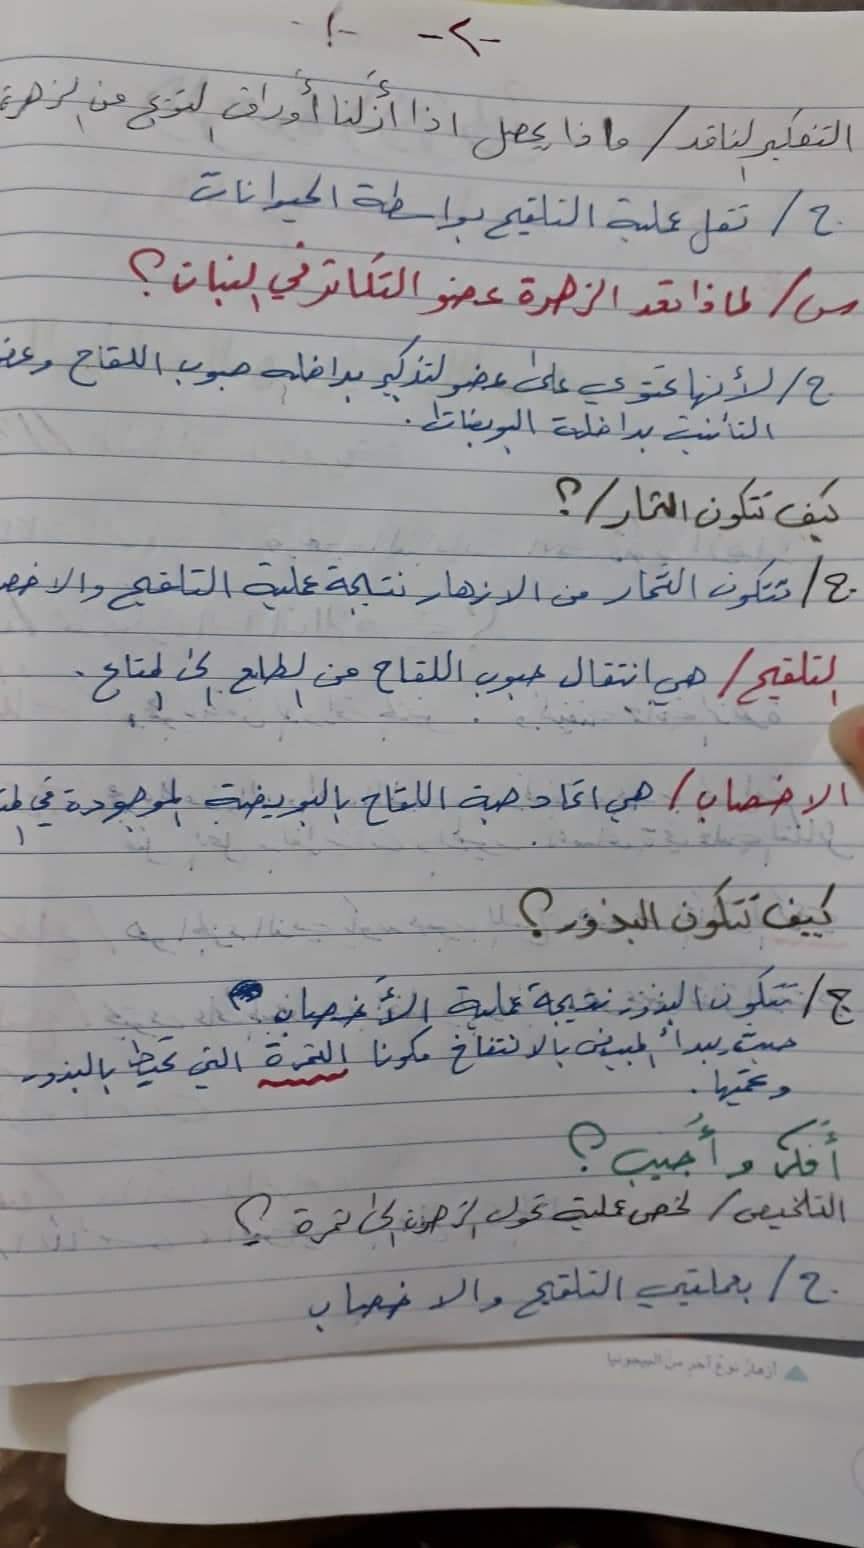 -٢-
التفكير الناقد/ ماذا يحصل اذا أزلنا أوراق التويج من الزهرة
ج/ تقل عملية التلقيح بواسطة الحيوانات
س/ لماذا تعد الزهرة عضو التكاثر في النبات؟
ج/ لأنها تحتوي على عضو لتذكير بداخله حبوب اللقاح وعضو
التأنيث بداخلة البويضات.
كيف تتكون الثمار/؟
ج/ تتكون الثمار من الازهار نتيجة عملية التلقيح والاخص
التلقيح/ هي انتقال حبوب اللقاح من الطلع الى المتاع.
الاخصاب/ هي اتحاد حبة اللقاح بالبويضة الموجودة في
كيف تتكون البذور؟
ج/ تتكون البذور نتيجة عملية الأخصاب
حيث يبدأ المبيض بالانتفاخ مكونا الثمرة التي تحيط بالبذور
وتحميها.
أفكر وأجيب؟
التلخيص/ لخص عملية تحول الزهرة الى ثمرة؟
ج/ بعمليتي التلقيح والاخصاب
أزهار نوع آخر من البيجونيا